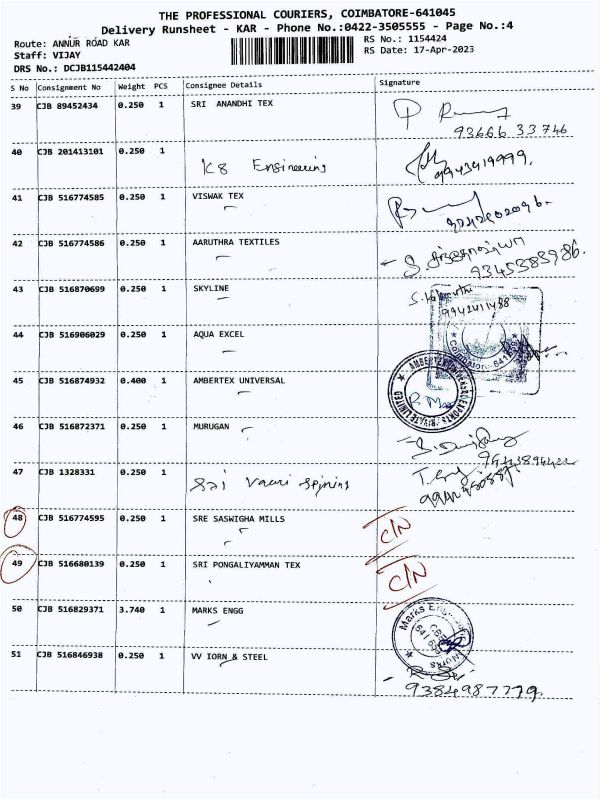 THE PROFESSIONAL COURIERS, COIMBATORE-641045
Delivery Runsheet - KAR - Phone No.:0422-3505555 - Page No.:4
Route: ANNUR ROAD KAR RS No.: 1154424
Staff: VIJAY RS Date: 17-Apr-2023
DRS No.: DCJB115442404
S No Consignment No Weight PCS Consignee Details Signature
39 CJB 89452434 0.250 1 SRI ANANDHI TEX
93666 33746
40 CJB 201413101 0.250 1 K8 Engineering
9943419999.
41 CJB 516774585 0.250 1 VISWAK TEX
42 CJB 516774586 0.250 1 AARUTHRA TEXTILES
9345383986.
43 CJB 516870699 0.250 1 SKYLINE
9942411488
44 CJB 516906029 0.250 1 AQUA EXCEL
45 CJB 516874932 0.400 1 AMBERTEX UNIVERSAL
46 CJB 516872371 0.250 1 MURUGAN
47 CJB 1328331 0.250 1 Sri Vaari Spinins
48 CJB 516774595 0.250 1 SRE SASWIGHA MILLS C/N
49 CJB 516680139 0.250 1 SRI PONGALIYAMMAN TEX C/N
50 CJB 516829371 3.740 1 MARKS ENGG
51 CJB 516846938 0.250 1 VV IORN & STEEL
9384987779.